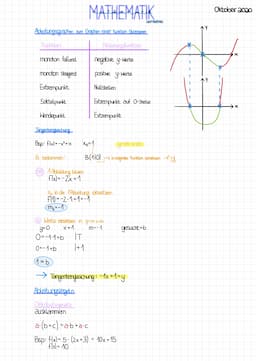 MATHEMATIK
Oktober 2020
Ableitungsgraphen zum Graphen einer Funktion
Funktion Ableitungsfunktion
monoton fallend negative y-Werte
monoton steigend positive y-Werte
Extrempunkt Nullstellen
Sattelpunkt Extrempunkt auf O-Achse
Wendepunkt Extrempunkt
Tangentengleichung
Bsp: f(x)= -x²+x x₀=1
B bestimmen: B(1|0) → in
1. Ableitung bilden
f'(x)= -2x+1
x₀ in die Ableitung einsetzen
f'(1)= -2·1+1= -1
m= -1
Werte einsetzen in y=mx+b
y=0 x=1 m=-1 gesucht=b
0=-1·1+b |T
0=-1+b |+1
1=b
→ Tangentengleichung: -1x+1=y
Ableitungsregeln
Distributivgesetz
ausklammern
a·(b+c)=a·b+a·c
Bsp: f(x)= 5·(2x+3) = 10x+15
f'(x)= 10